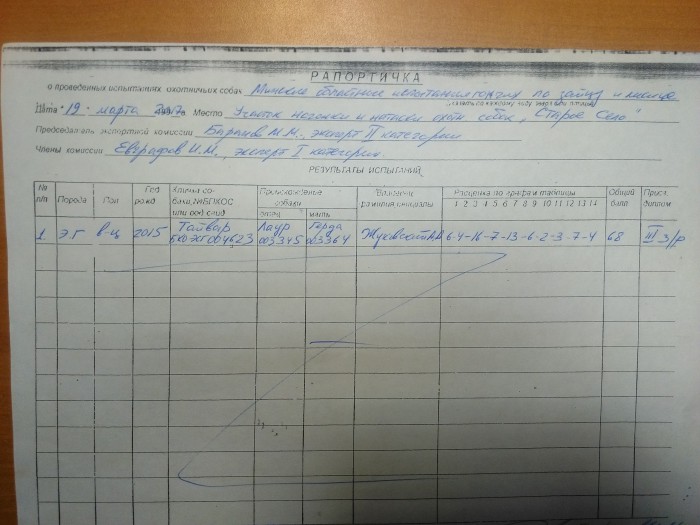 РАПОРТИЧКА
о проведенных испытаниях охотничьих собак Минские областные испытания гончих по зайцу и лисице
(указать по какому виду зверя или птицы)
Дата "19" марта 2017г. Место Участок нагонки и натаски охот. собак "Старое Село"
Председатель экспертной комиссии Баранов М.М., эксперт II категории
Члены комиссии Евграфов И.М., эксперт I категории.
РЕЗУЛЬТАТЫ ИСПЫТАНИЙ
№ п/п Порода Пол Год рожд Кличка собаки, №БПКОС или род. свид. Происхождение собаки отец мать Владелец фамилия инициалы Расценка по графам таблицы 1 2 3 4 5 6 7 8 9 10 11 12 13 14 Общий балл Прис. диплом
1. Э.Г в-ц 2015 Тайвар БКО ЭГ 004623 Лаур 003345 Герда 003364 6-4-16-7-13-6-2-3-7-4 68 III з/р